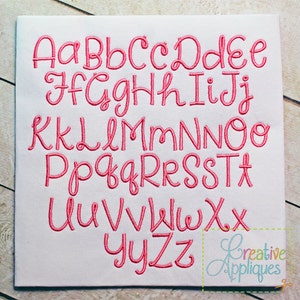 AaBbCcDdEe
FfGgHhIiJj
KkLlMmNnOo
PpQqRrSsTt
UuVvWwXx
YyZz
Creative
Appliques